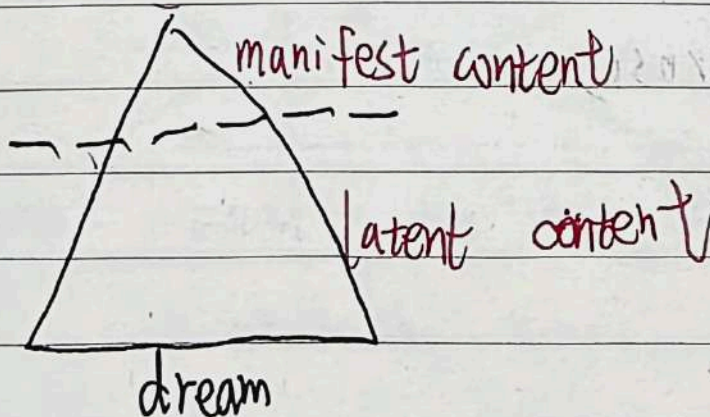 manifest content
latent content
dream